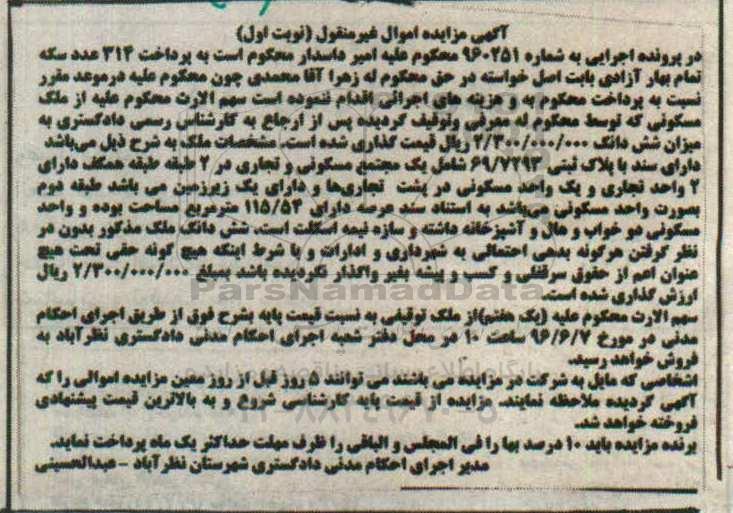 آگهی مزایده اموال غیرمنقول (نوبت اول)
در پرونده اجرایی به شماره ۹۶۰۲۵۱ محکوم علیه امیر داسدار محکوم است به پرداخت ۳۱۴ عدد سکه
تمام بهار آزادی بابت اصل خواسته در حق محکوم له زهرا آقا محمدی چون محکوم علیه درموعد مقرر
نسبت به پرداخت محکوم به و هزینه های اجرائی اقدام ننموده است سهم الارث محکوم علیه از ملک
مسکونی که توسط محکوم له معرفی وتوقیف گردیده پس از ارجاع به کارشناس رسمی دادگستری به
میزان شش دانگ ۲/۳۰۰/۰۰۰/۰۰۰ ریال قیمت گذاری شده است. مشخصات ملک به شرح ذیل می‌باشد
دارای سند با پلاک ثبتی ۶۹/۷۲۹۳ شامل یک مجتمع مسکونی و تجاری در ۲ طبقه طبقه همکف دارای
۲ واحد تجاری و یک واحد مسکونی در پشت تجاری‌ها و دارای یک زیرزمین می باشد طبقه دوم
بصورت واحد مسکونی می‌باشد به استناد سند عرصه دارای ۱۱۵/۵۴ مترمربع مساحت بوده و واحد
مسکونی دو خواب و هال و آشپزخانه داشته و سازه نیمه اسکلت است. شش دانگ ملک مذکور بدون در
نظر گرفتن هرگونه بدهی احتمالی به شهرداری و ادارات و با شرط اینکه هیچ گونه حقی تحت هیچ
عنوان اعم از حقوق سرقفلی و کسب و پیشه بغیر واگذار نگردیده باشد بمبلغ ۲/۳۰۰/۰۰۰/۰۰۰ ریال
ارزش گذاری شده است.
سهم الارث محکوم علیه (یک هفتم)از ملک توقیفی به نسبت قیمت پایه بشرح فوق از طریق اجرای احکام
مدنی در مورخ ۹۶/۶/۷ ساعت ۱۰ در محل دفتر شعبه اجرای احکام مدنی دادگستری نظرآباد به
فروش خواهد رسید.
اشخاصی که مایل به شرکت در مزایده می باشند می توانند ۵ روز قبل از روز معین مزایده اموالی را که
آگهی گردیده ملاحظه نمایند. مزایده از قیمت پایه کارشناسی شروع و به بالاترین قیمت پیشنهادی
فروخته خواهد شد.
برنده مزایده باید ۱۰ درصد بها را فی المجلس و الباقی را ظرف مهلت حداکثر یک ماه پرداخت نماید.
مدیر اجرای احکام مدنی دادگستری شهرستان نظرآباد -عبدالحسینی
ParsNamadData